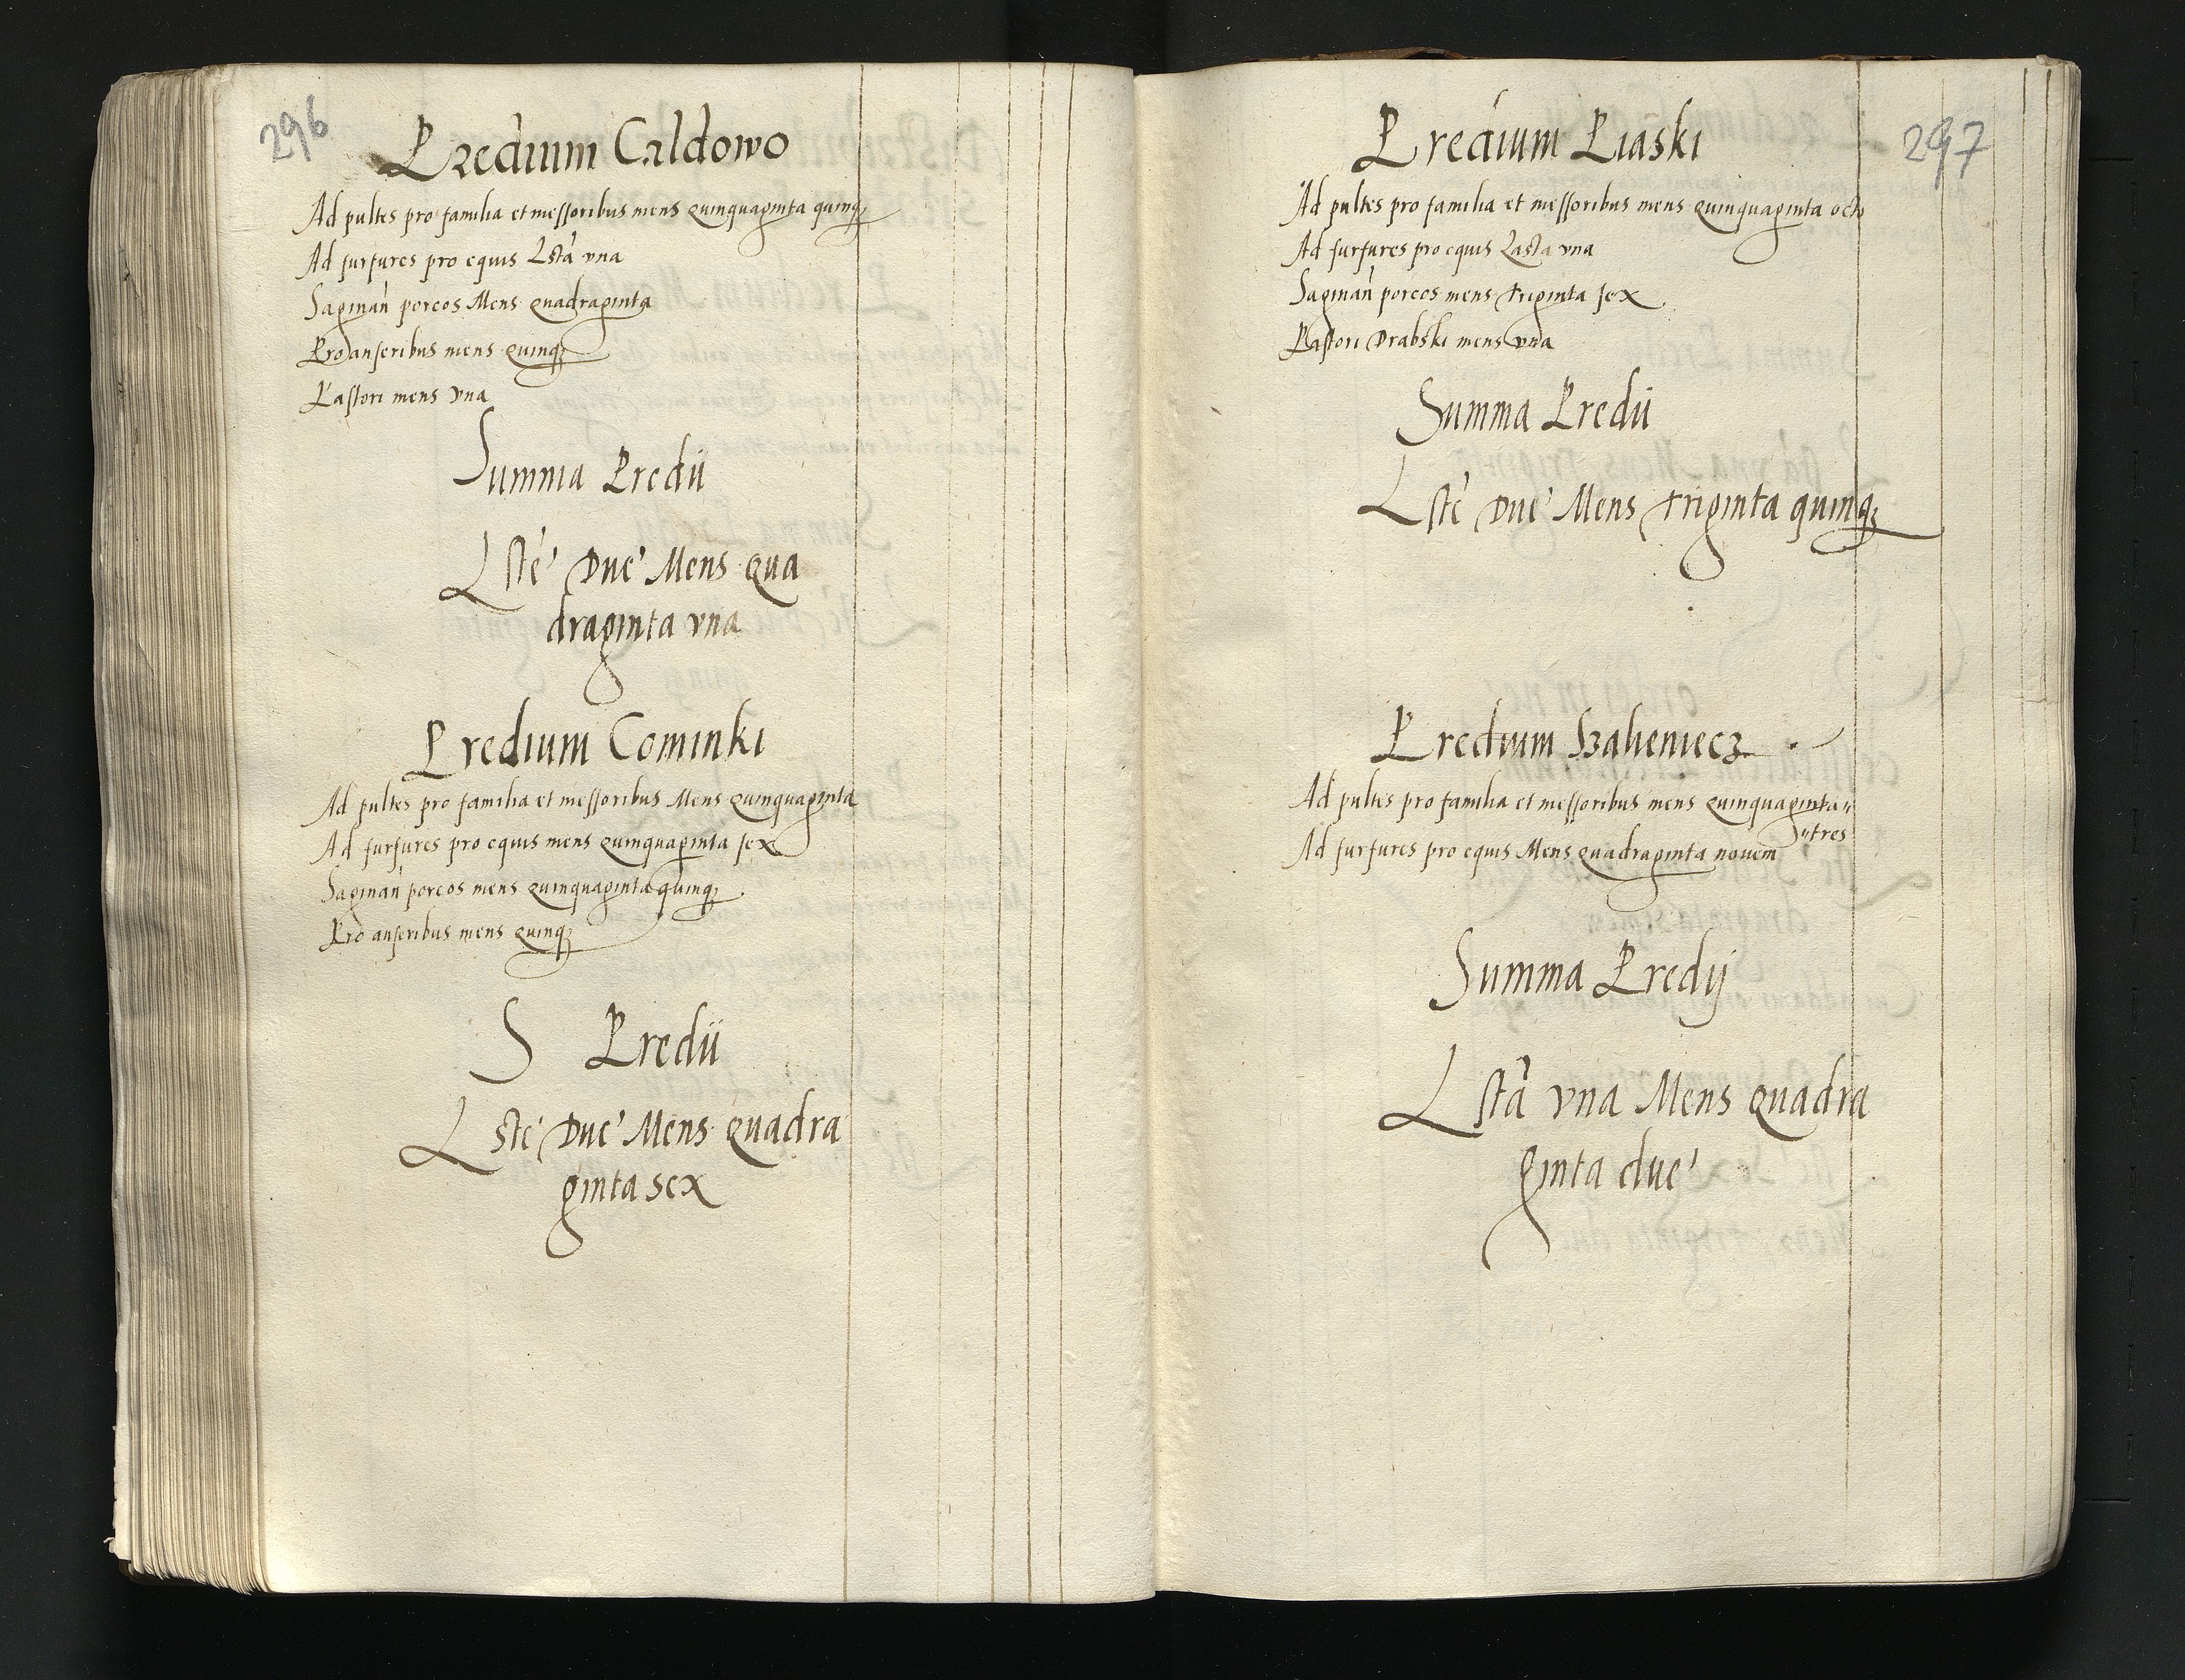 296
Predium Caldowo
Ad pultes pro familia et messoribus mens quinquaginta quinqꝫ
Ad furfures pro equis Lsta vna
Saginan porcos Mens quadraginta
Pro anseribus mens quinqꝫ
Pastori mens vna
Summa Predii
Lste Due Mens qua
draginta vna
Predium Cominki
Ad pultes pro familia et messoribus Mens quinquaginta
Ad furfures pro equis mens quinquaginta sex
Saginan porcos mens quinquaginta quinqꝫ
Pro anseribus mens quinqꝫ
S Predii
Lste Due Mens quadra
ginta sex
297
Predium Piaski
Ad pultes pro familia et messoribus mens quinquaginta octo
Ad furfures pro equis Lasta vna
Saginan porcos mens triginta sex
Pastori Drabski mens vna
Summa Predii
Lste Due Mens triginta quinqꝫ
Predium
Ad pultes pro familia et messoribus mens quinquaginta〃
〃tres
Ad furfures pro equis Mens quadraginta novem
Summa Predij
Lsta vna Mens quadra
ginta due